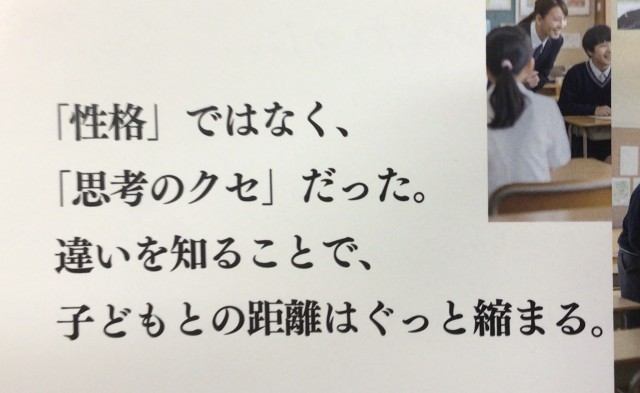 「性格」ではなく、
「思考のクセ」だった。
違いを知ることで、
子どもとの距離はぐっと縮まる。